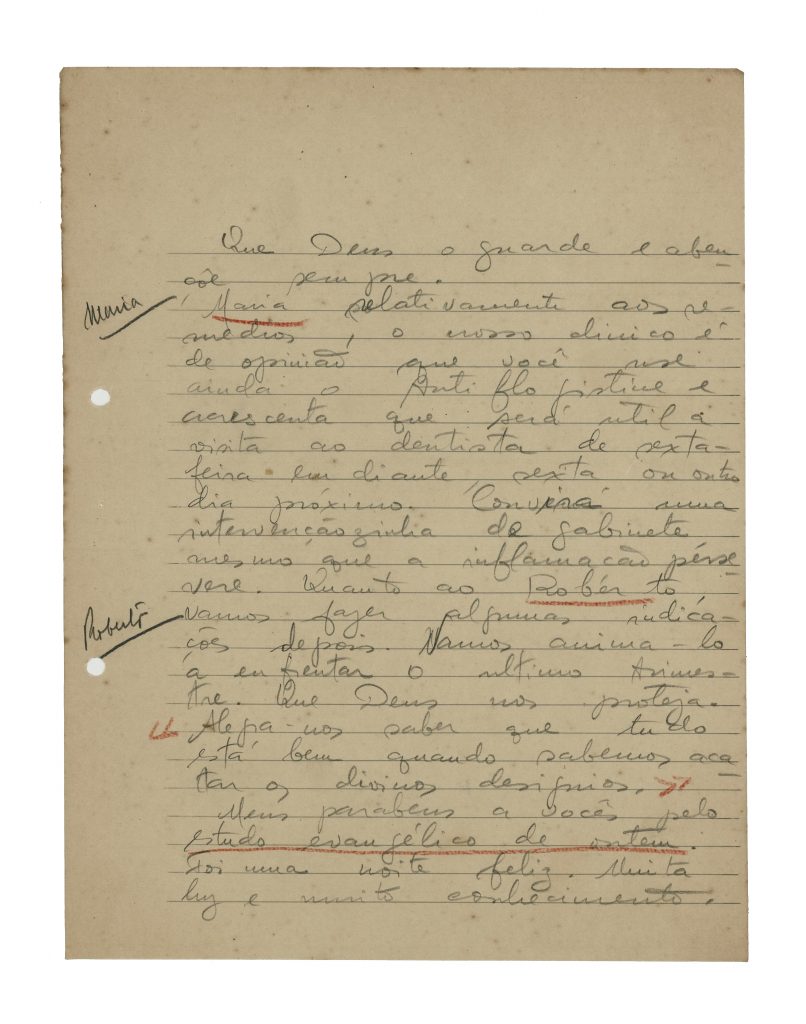 Que Deus o guarde e aben-
çõe sempre.
Maria
Maria relativamente aos re-
médios, o nosso clinico é
de opinião que você use
ainda o Antiflogistine e
acrescenta que será util a
visita ao dentista de sexta-
feira em diante sexta ou outro
dia próximo. Convirá uma
intervençãozinha de gabinete
mesmo que a inflamação pérse-
vere. Quanto ao Robérto,
Roberto
vamos fazer algumas indica-
ções depois. Vamos anima-lo
á enfrentar o ultimo trimes-
tre. Que Deus nos proteja.
" Alegra-nos saber que tudo
está bem quando sabemos aca-
tar os divinos designios. "
Meus parabens a vocês pelo
estudo evangélico de ontem.
Foi uma noite feliz. Muita
luz e muito conhecimento.